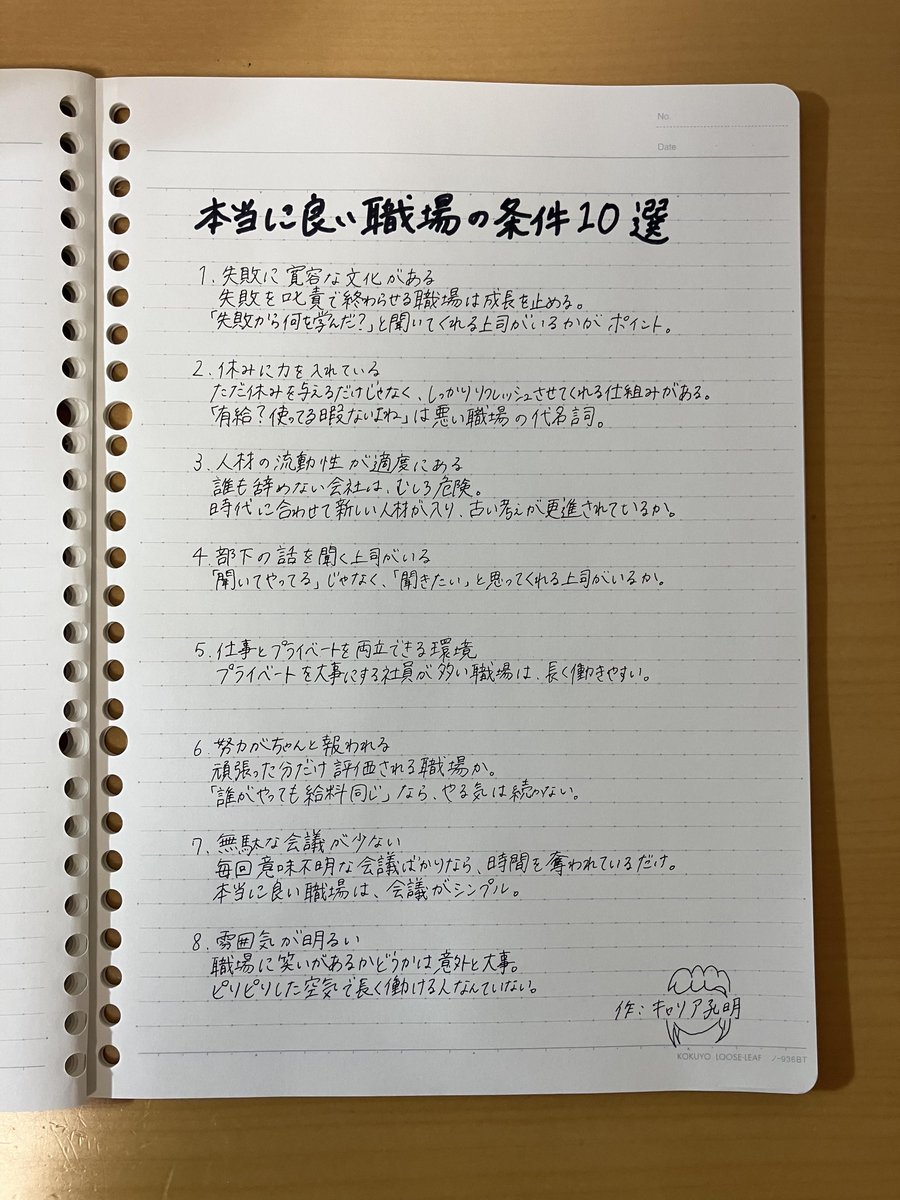 No.
Date
本当に良い職場の条件10選
1. 失敗に寛容な文化がある
失敗を叱責で終わらせる職場は成長を止める。
「失敗から何を学んだ?」と聞いてくれる上司がいるかがポイント。
2. 休みに力を入れている
ただ休みを与えるだけじゃなく、しっかりリフレッシュさせてくれる仕組みがある。
「有給?使ってる暇ないよね」は悪い職場の代名詞。
3. 人材の流動性が適度にある
誰も辞めない会社は、むしろ危険。
時代に合わせて新しい人材が入り、古い考えが更進されているか。
4. 部下の話を聞く上司がいる
「聞いてやってる」じゃなく、「聞きたい」と思ってくれる上司がいるか。
5. 仕事とプライベートを両立できる環境
プライベートを大事にする社員が多い職場は、長く働きやすい。
6. 努力がちゃんと報われる
頑張った分だけ評価される職場か。
「誰がやっても給料同じ」なら、やる気は続かない。
7. 無駄な会議が少ない
毎回意味不明な会議ばかりなら、時間を奪われているだけ。
本当に良い職場は、会議がシンプル。
8. 雰囲気が明るい
職場に笑いがあるかどうかは意外と大事。
ピリピリした空気で長く働ける人なんていない。
作:キャリア孔明
KOKUYO LOOSE-LEAF ノ-936BT